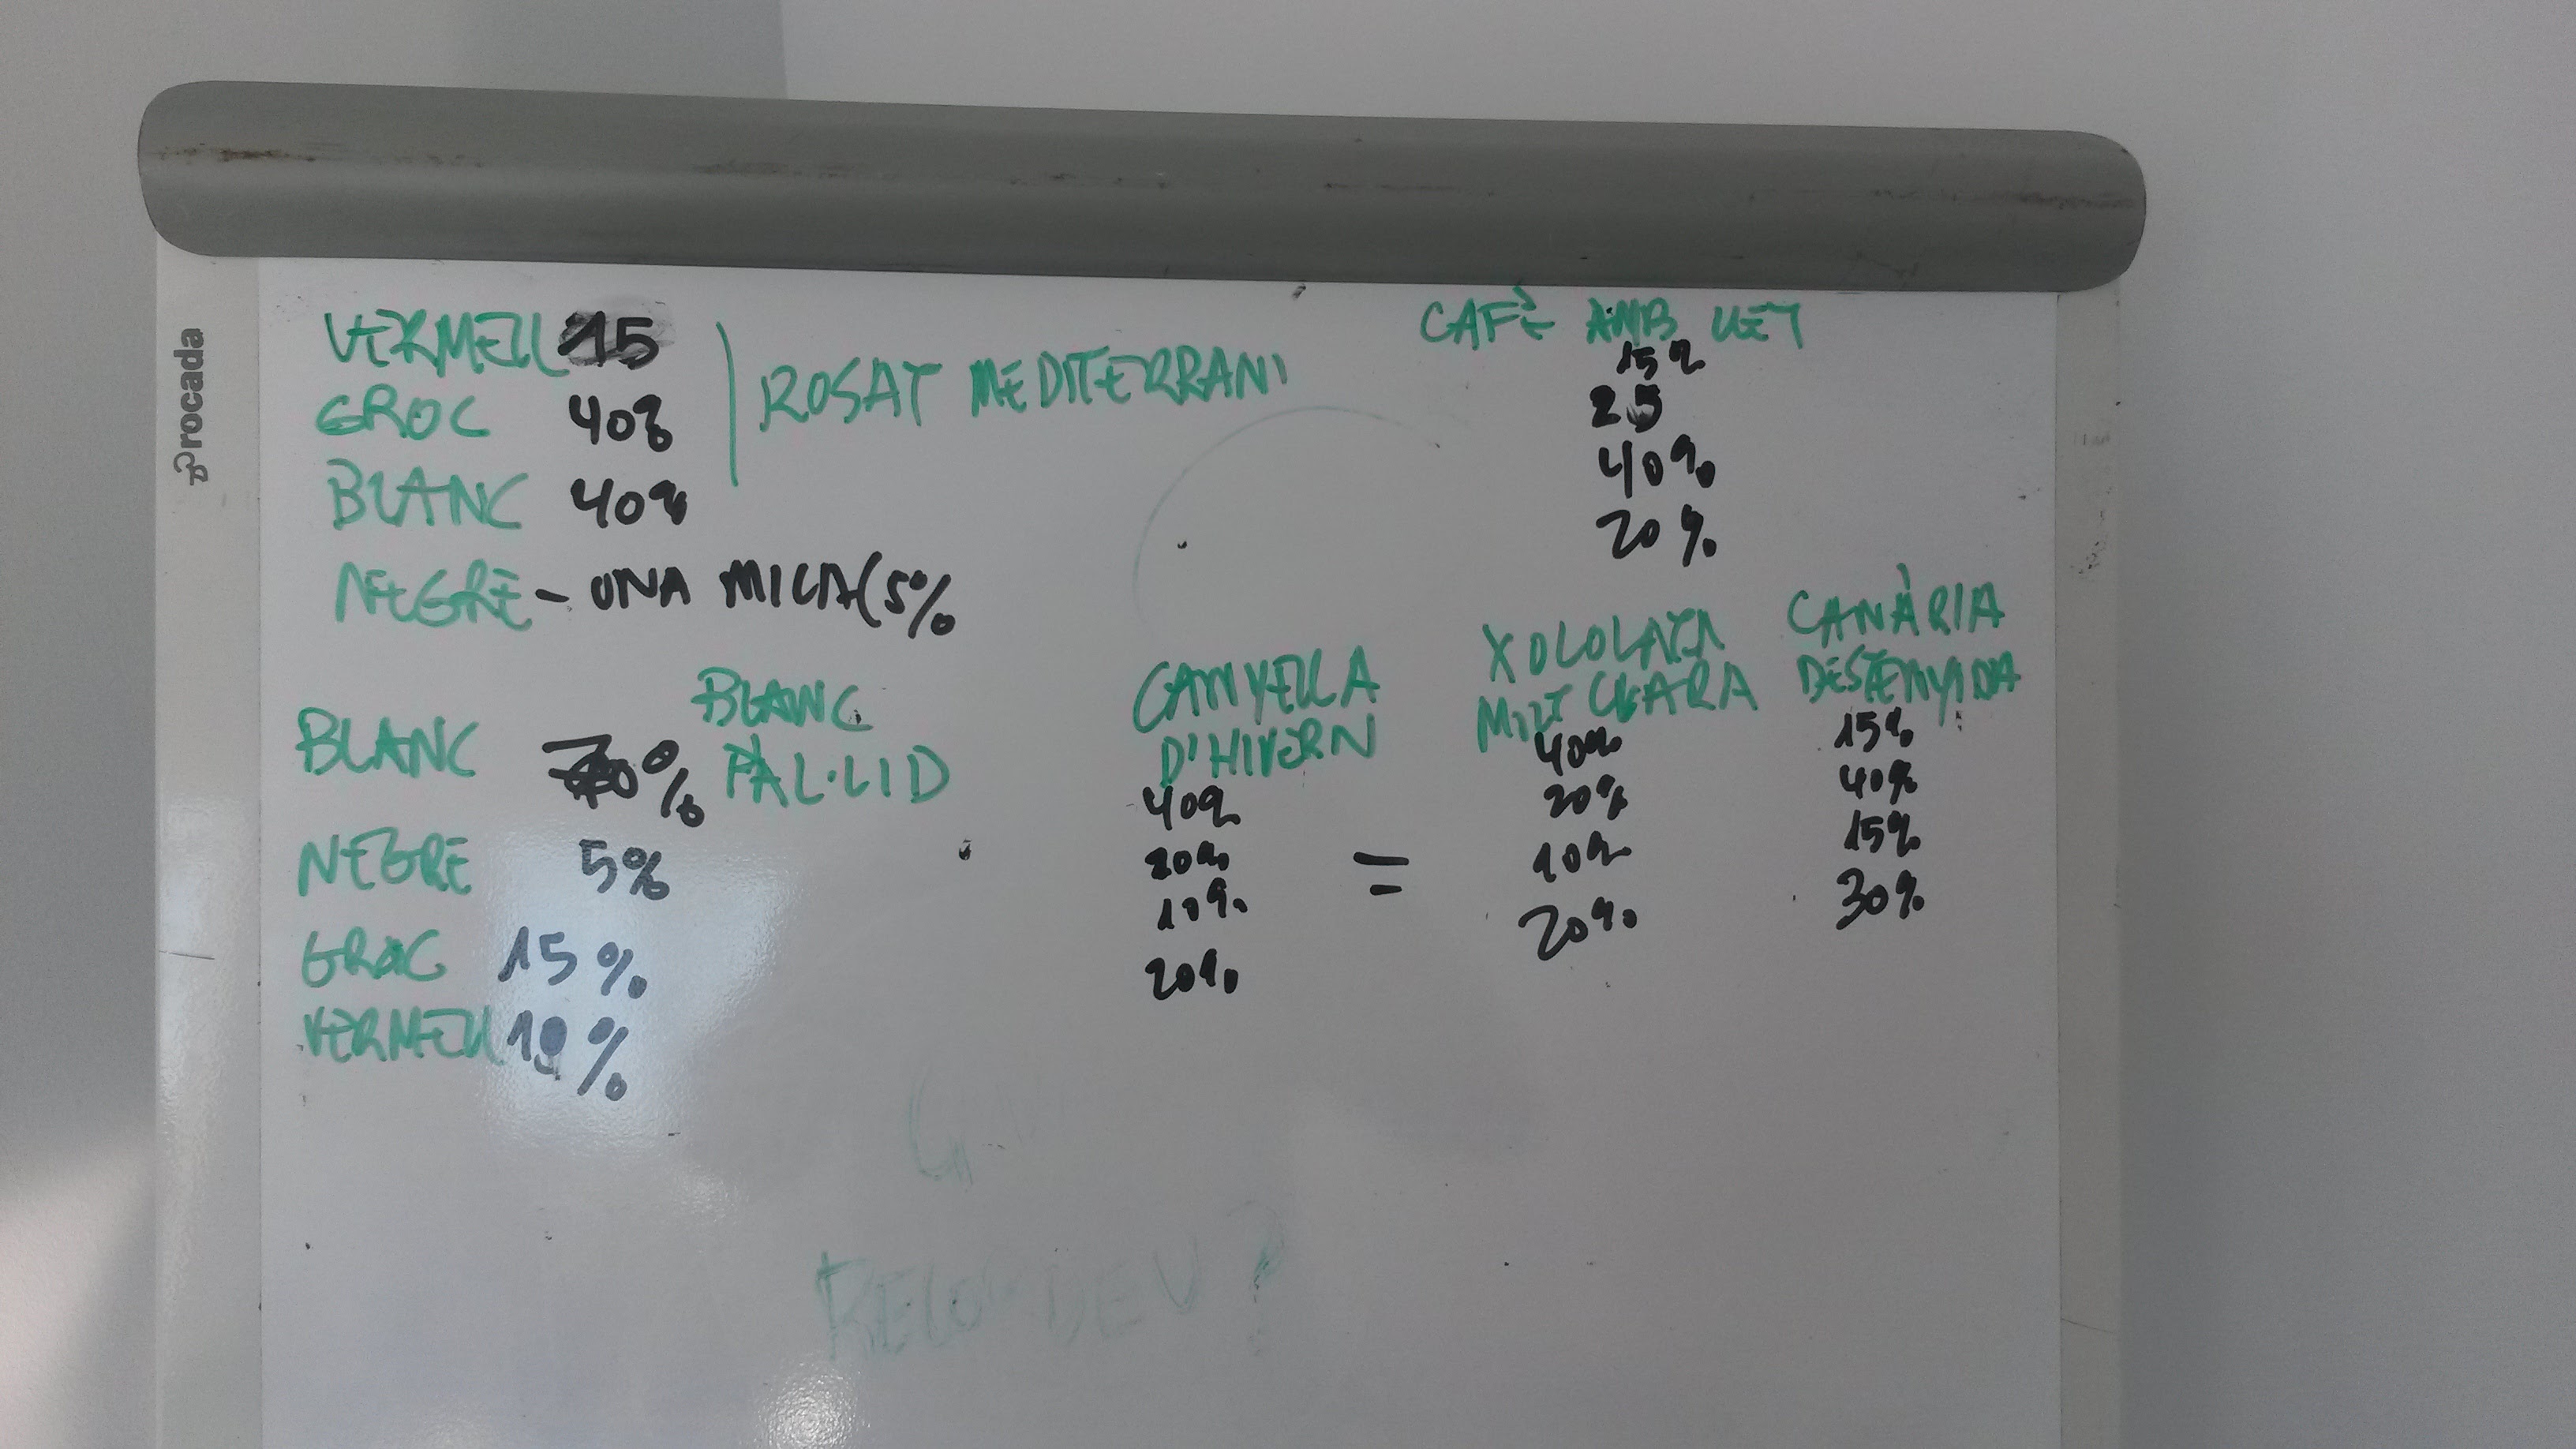 rocada
VERMELL 15
GROC 40%
BLANC 40%
NEGRE - UNA MICA (5%
ROSAT MEDITERRANI
CAFÈ AMB LLET
15%
25
40%
20%
BLANC 70%
NEGRE 5%
GROC 15%
VERMELL 10%
BLANC
PAL·LID
CANYELLA
D'HIVERN
40%
20%
10%
20%
=
XOCOLATA
MIXT CLARA
40%
20%
10%
20%
CANÀRIA
DESTENYIDA
15%
40%
15%
30%